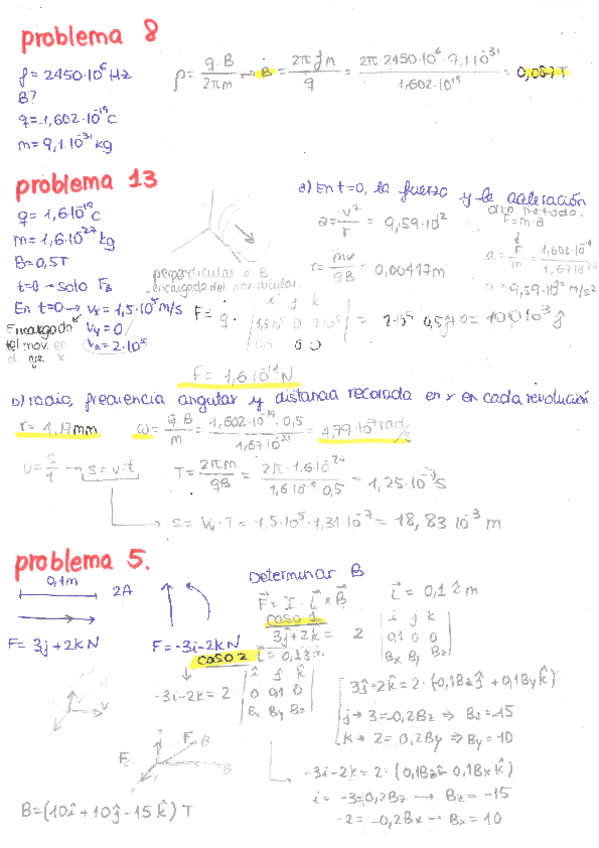 problema 8
f = 2450·10⁶ Hz
B?
q = -1,602·10⁻¹⁹ C
m = 9,1·10⁻³¹ kg
ρ = q·B / 2πm → B = 2πfm / q = 2π·2450·10⁶·9,1·10⁻³¹ / 1,602·10⁻¹⁹ = 0,087T
problema 13
q = 1,6·10⁻¹⁹ C
m = 1,6·10⁻²⁷ kg
B = 0,5T
t=0 → solo F_B
En t=0 → vx = 1,5·10⁵ m/s
vy = 0
vz = 2·10⁵
Encargado
del mov. en
el eje x
perpendicular a B
encargado del mov. circular
a) En t=0, la fuerza y la aceleración
otro método.
F = m·a
a = v² / r = 9,59·10¹²
r = mv / qB = 0,00417m
a = F / m = 1,602·10⁻¹⁴ / 1,67·10⁻²⁷
a = 9,59·10¹² m/s²
F = q · | i j k | 1,5·10⁵ 0 2·10⁵ | 0,5 0 0 | = 2·10⁵ 0,5 = 100·10³ ĵ
F = 1,6·10⁻¹⁴ N
b) radio, frecuencia angular y distancia recorrida en x en cada revolución.
r = 4,17mm
ω = q B / m = 1,602·10⁻¹⁹·0,5 / 1,67·10⁻²⁷ = 4,79·10⁷ rad/s
v = s / t → s = v·t
T = 2πm / qB = 2π·1,6·10⁻²⁷ / 1,6·10⁻¹⁹ 0,5 = 1,25·10⁻⁷ s
s = vx · T = 1,5·10⁵·1,31·10⁻⁷ = 18,83·10⁻³ m
problema 5.
0,1m
2A
F = 3j + 2k N
F = -3i - 2k N
Determinar B
F = I · L × B
L = 0,1 î m
caso 1
3ĵ + 2k = 2 | i j k | 0,1 0 0 | Bx By Bz |
caso 2
-3i - 2k = 2 · | î ĵ k̂ | 0 0,1 0 | Bx By Bz |
3ĵ + 2k̂ = 2·(-0,1Bz ĵ + 0,1By k̂)
j → 3 = -0,2Bz ⇒ Bz = -15
k → 2 = 0,2By ⇒ By = 10
F
B
v
F
B
-3i - 2k = 2·(0,1Bz î - 0,1Bx k̂)
i = -3 = 0,2Bz → Bz = -15
-2 = -0,2Bx → Bx = 10
B = (10î + 10ĵ - 15k̂) T